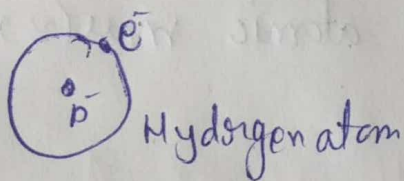 e⁻
p⁻
Hydrogen atom